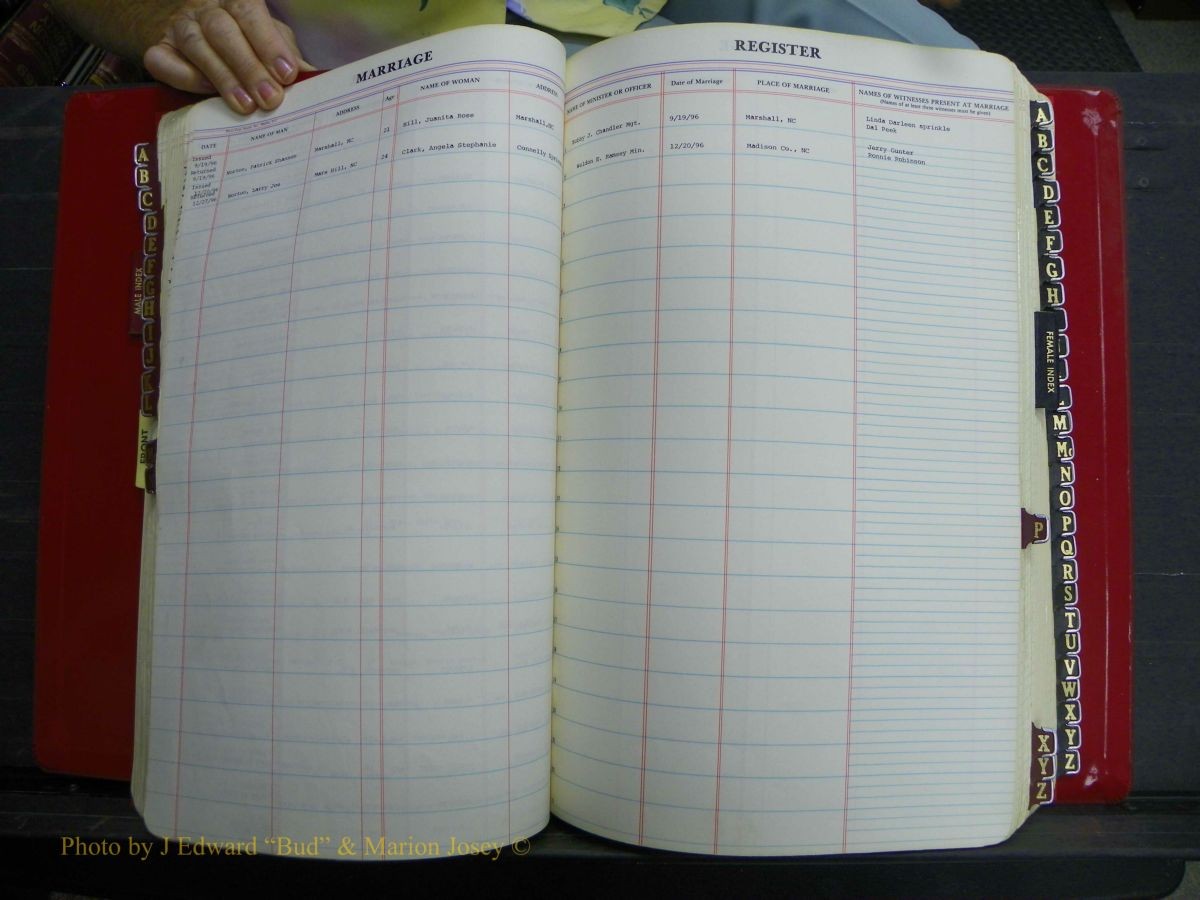 MARRIAGE
DATE
NAME OF MAN
ADDRESS
Age
NAME OF WOMAN
ADDRESS
Issued
9/19/96
Returned
9/19/96
Norton, Patrick Shannon
Marshall, NC
21
Hill, Juanita Rose
Marshall, NC
Issued
Returned
12/27/96
Norton, Larry Joe
Mars Hill, NC
24
Clark, Angela Stephanie
Connelly
REGISTER
NAME OF MINISTER OR OFFICER
Date of Marriage
PLACE OF MARRIAGE
NAMES OF WITNESSES PRESENT AT MARRIAGE
(Names of at least three witnesses must be given)
Bobby J. Chandler Mgt.
9/19/96
Marshall, NC
Linda Darleen sprinkle
Dal Peek
Weldon E. Ramsey Min.
12/20/96
Madison Co., NC
Jerry Gunter
Ronnie Robinson
A
B
C
D
E
F
G
H
I
J
K
L
MALE INDEX
FRONT
A
B
C
D
E
F
G
H
FEMALE INDEX
M
Mc
N
O
P
Q
R
S
T
U
V
W
X
Y
Z
P
XYZ
Photo by J Edward “Bud” & Marion Josey ©